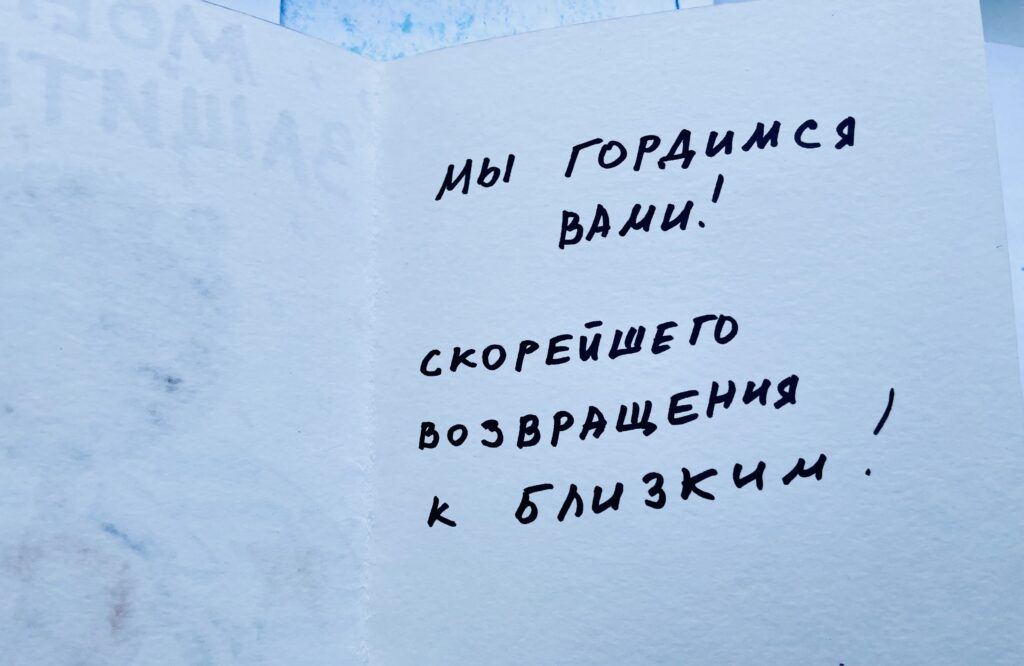 МЫ ГОРДИМСЯ
ВАМИ!
СКОРЕЙШЕГО
ВОЗВРАЩЕНИЯ
К БЛИЗКИМ!